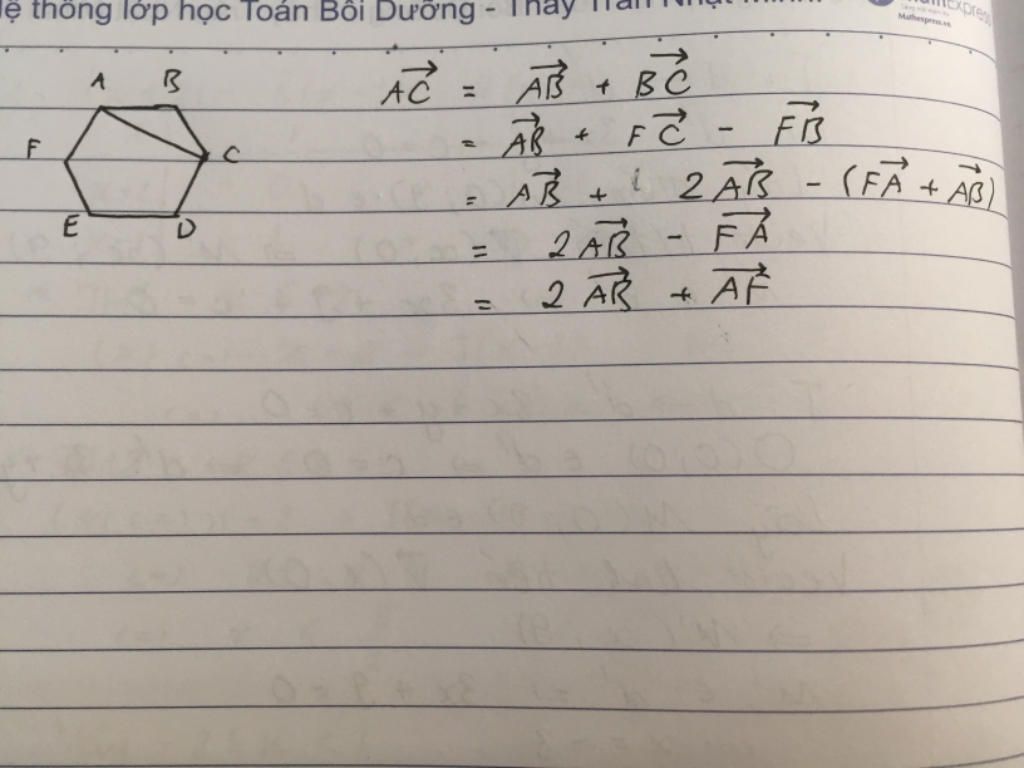 lệ thống lớp học Toán Bồi Dưỡng - Thầy Trần Nhật Minh
Mathexpress.vn
A B
F C
E D
$\overrightarrow{AC} = \overrightarrow{AB} + \overrightarrow{BC}$
$= \overrightarrow{AB} + \overrightarrow{FC} - \overrightarrow{FB}$
$= \overrightarrow{AB} + 2\overrightarrow{AB} - (\overrightarrow{FA} + \overrightarrow{AB})$
$= 2\overrightarrow{AB} - \overrightarrow{FA}$
$= 2\overrightarrow{AB} + \overrightarrow{AF}$